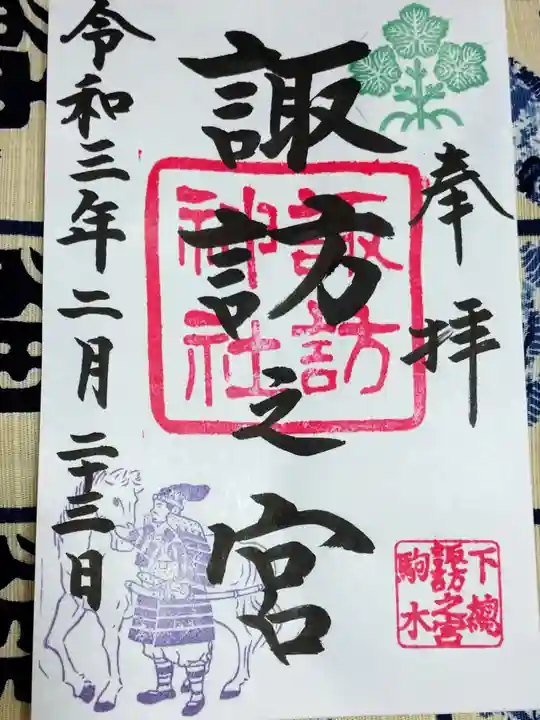 奉拝
諏訪之宮
諏訪
神社
令和三年二月二十三日
下総
諏訪之宮
駒木